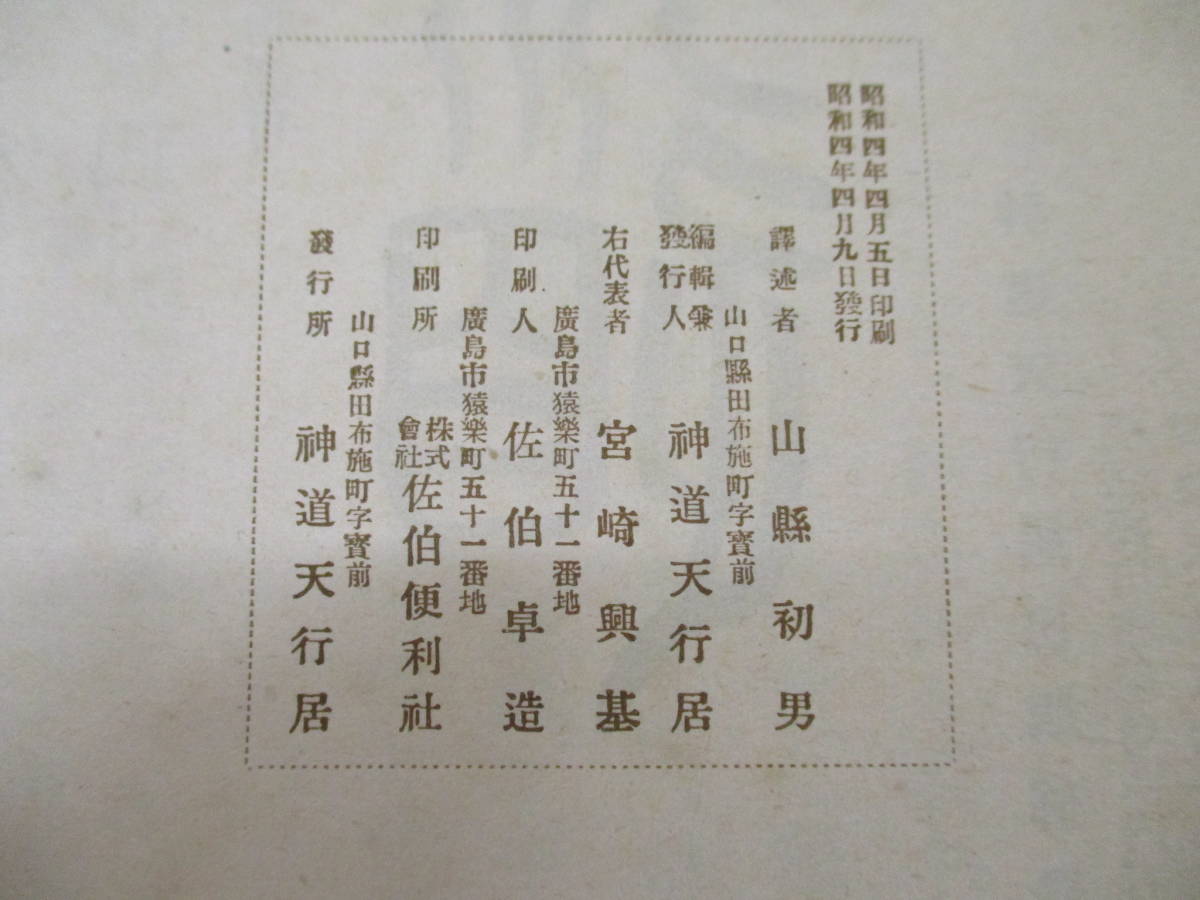 昭和四年四月五日印刷
昭和四年四月九日發行
譯述者 山縣初男
山口縣田布施町字寳前
編輯兼發行人 神道天行居
右代表者 宮崎興基
廣島市猿樂町五十一番地
印刷人 佐伯卓造
廣島市猿樂町五十一番地
印刷所 株式會社佐伯便利社
山口縣田布施町字寳前
發行所 神道天行居